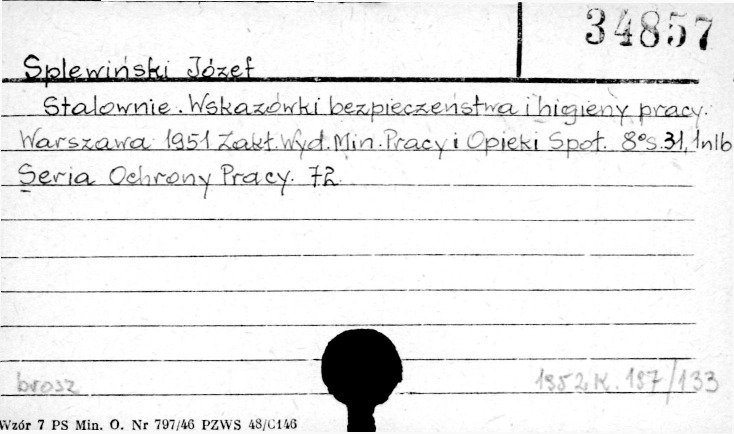 34857
Splewiński Józef
Stalownie. Wskazówki bezpieczeństwa i higieny pracy.
Warszawa 1951 Zakł. Wyd. Min. Pracy i Opieki Społ. 8° s. 31, 1nlb
Seria Ochrony Pracy. 72
brosz
1952 K. 187/133
Wzór 7 PS Min. O. Nr 797/46 PZWS 48/C146